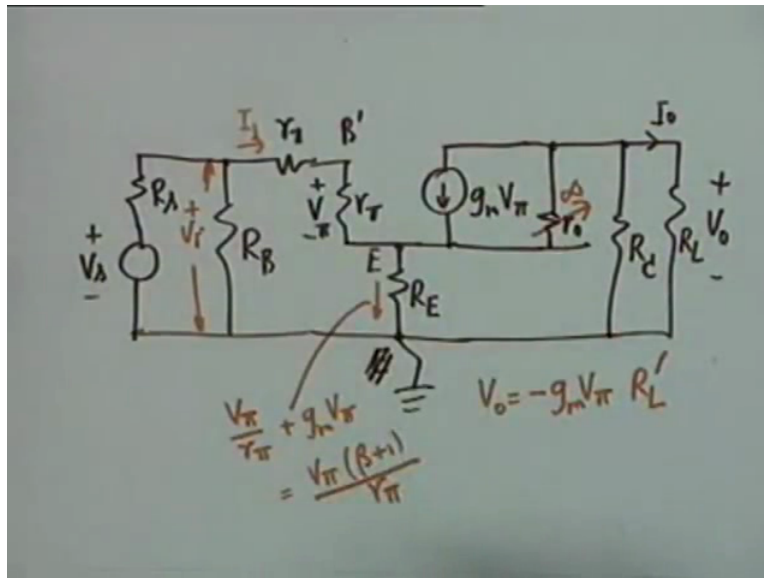 I₁ rₓ B' I₀
Rₛ + Vᵢ R_B + V_π - r_π gₘV_π r₀ ∞ R_C R_L + V₀ -
+ Vₛ -
E R_E
V_π/r_π + gₘV_π
= V_π(β+1)/r_π
V₀ = -gₘV_π R_L'